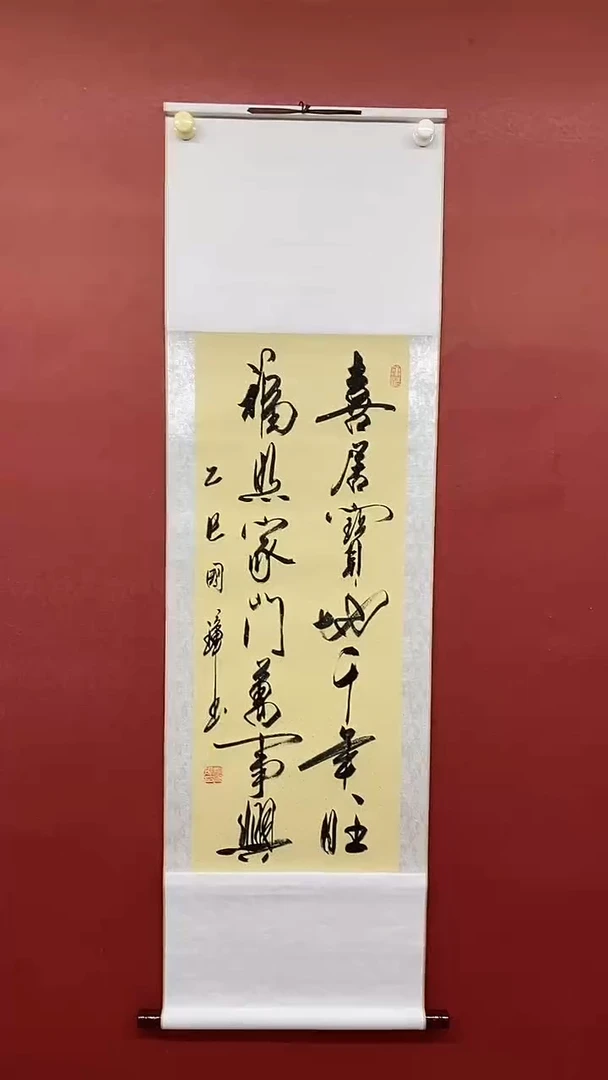 喜居寶地千年旺
福照家門萬事興
乙巳國